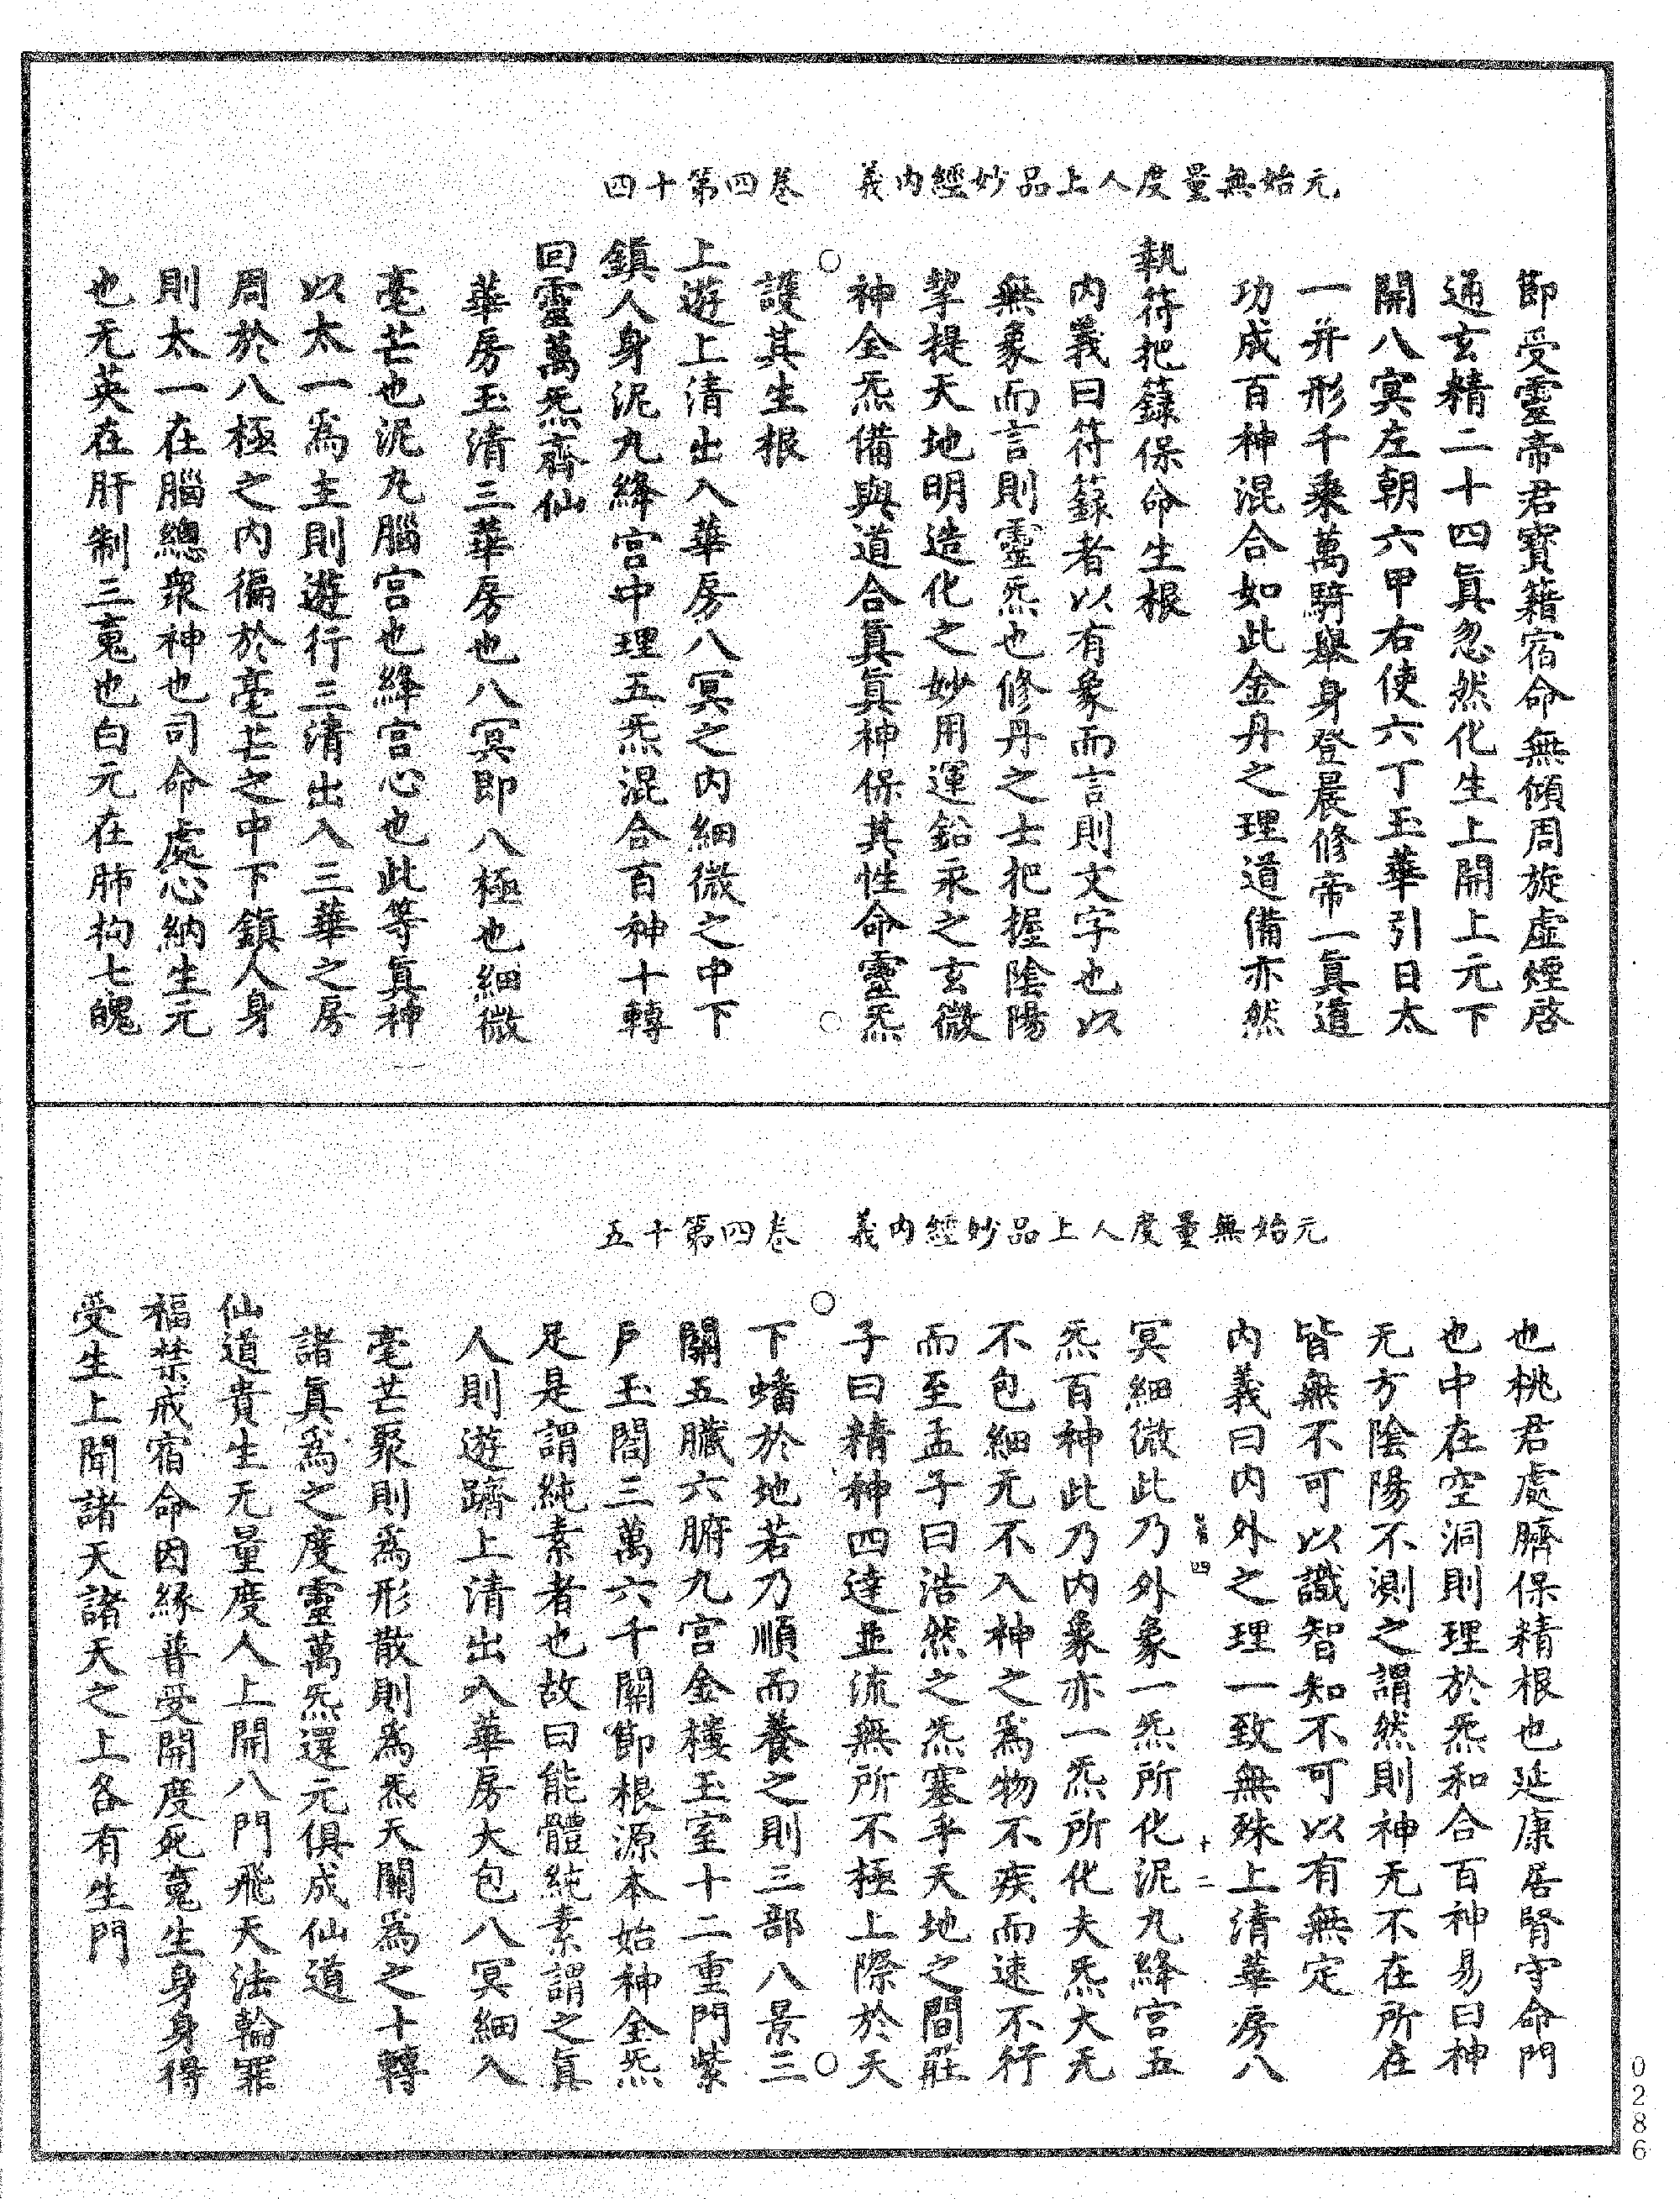 元始無量度人上品妙經內義 卷四第十四
節受靈帝君寶籍宿命無傾周旋虛煙啓
通玄精二十四眞忽然化生上開上元下
開八冥左朝六甲右使六丁玉華引日太
一并形千乘萬騎舉身登晨修帝一眞道
功成百神混合如此金丹之理道備亦然
執符把籙保命生根
內義曰符籙者以有象而言則文字也以
無象而言則靈炁也修丹之士把握陰陽
挈提天地明造化之妙用運鉛汞之玄微
神全炁備與道合眞眞神保其性命靈炁
護其生根
上遊上清出入華房八冥之內細微之中下
鎮人身泥丸絳宮中理五炁混合百神十轉
回靈萬炁齊仙
華房玉清三華房也八冥即八極也細微
毫芒也泥丸腦宮也絳宮心也此等眞神
以太一爲主則遊行三清出入三華之房
周於八極之內徧於毫芒之中下鎮人身
則太一在腦總衆神也司命處心納生元
也无英在肝制三䰟也白元在肺拘七魄
元始無量度人上品妙經內義 卷四第十五
也桃君處臍保精根也延康居腎守命門
也中在空洞則理於炁和合百神易曰神
无方陰陽不測之謂然則神无不在所在
皆無不可以識智知不可以有無定
內義曰內外之理一致無殊上清華房八
冥細微此乃外象一炁所化泥丸絳宮五
炁百神此乃內象亦一炁所化夫炁大无
不包細无不入神之爲物不疾而速不行
而至孟子曰浩然之炁塞乎天地之間莊
子曰精神四達並流無所不極上際於天
下蟠於地若乃順而養之則三部八景三
關五臟六腑九宮金樓玉室十二重門紫
戶玉閤三萬六千關節根源本始神全炁
足是謂純素者也故曰能體純素謂之眞
人則遊躋上清出入華房大包八冥細入
毫芒聚則爲形散則爲炁天關爲之十轉
諸眞爲之度靈萬炁還元俱成仙道
仙道貴生无量度人上開八門飛天法輪罪
福禁戒宿命因緣普受開度死䰟生身身得
受生上聞諸天諸天之上各有生門
0286